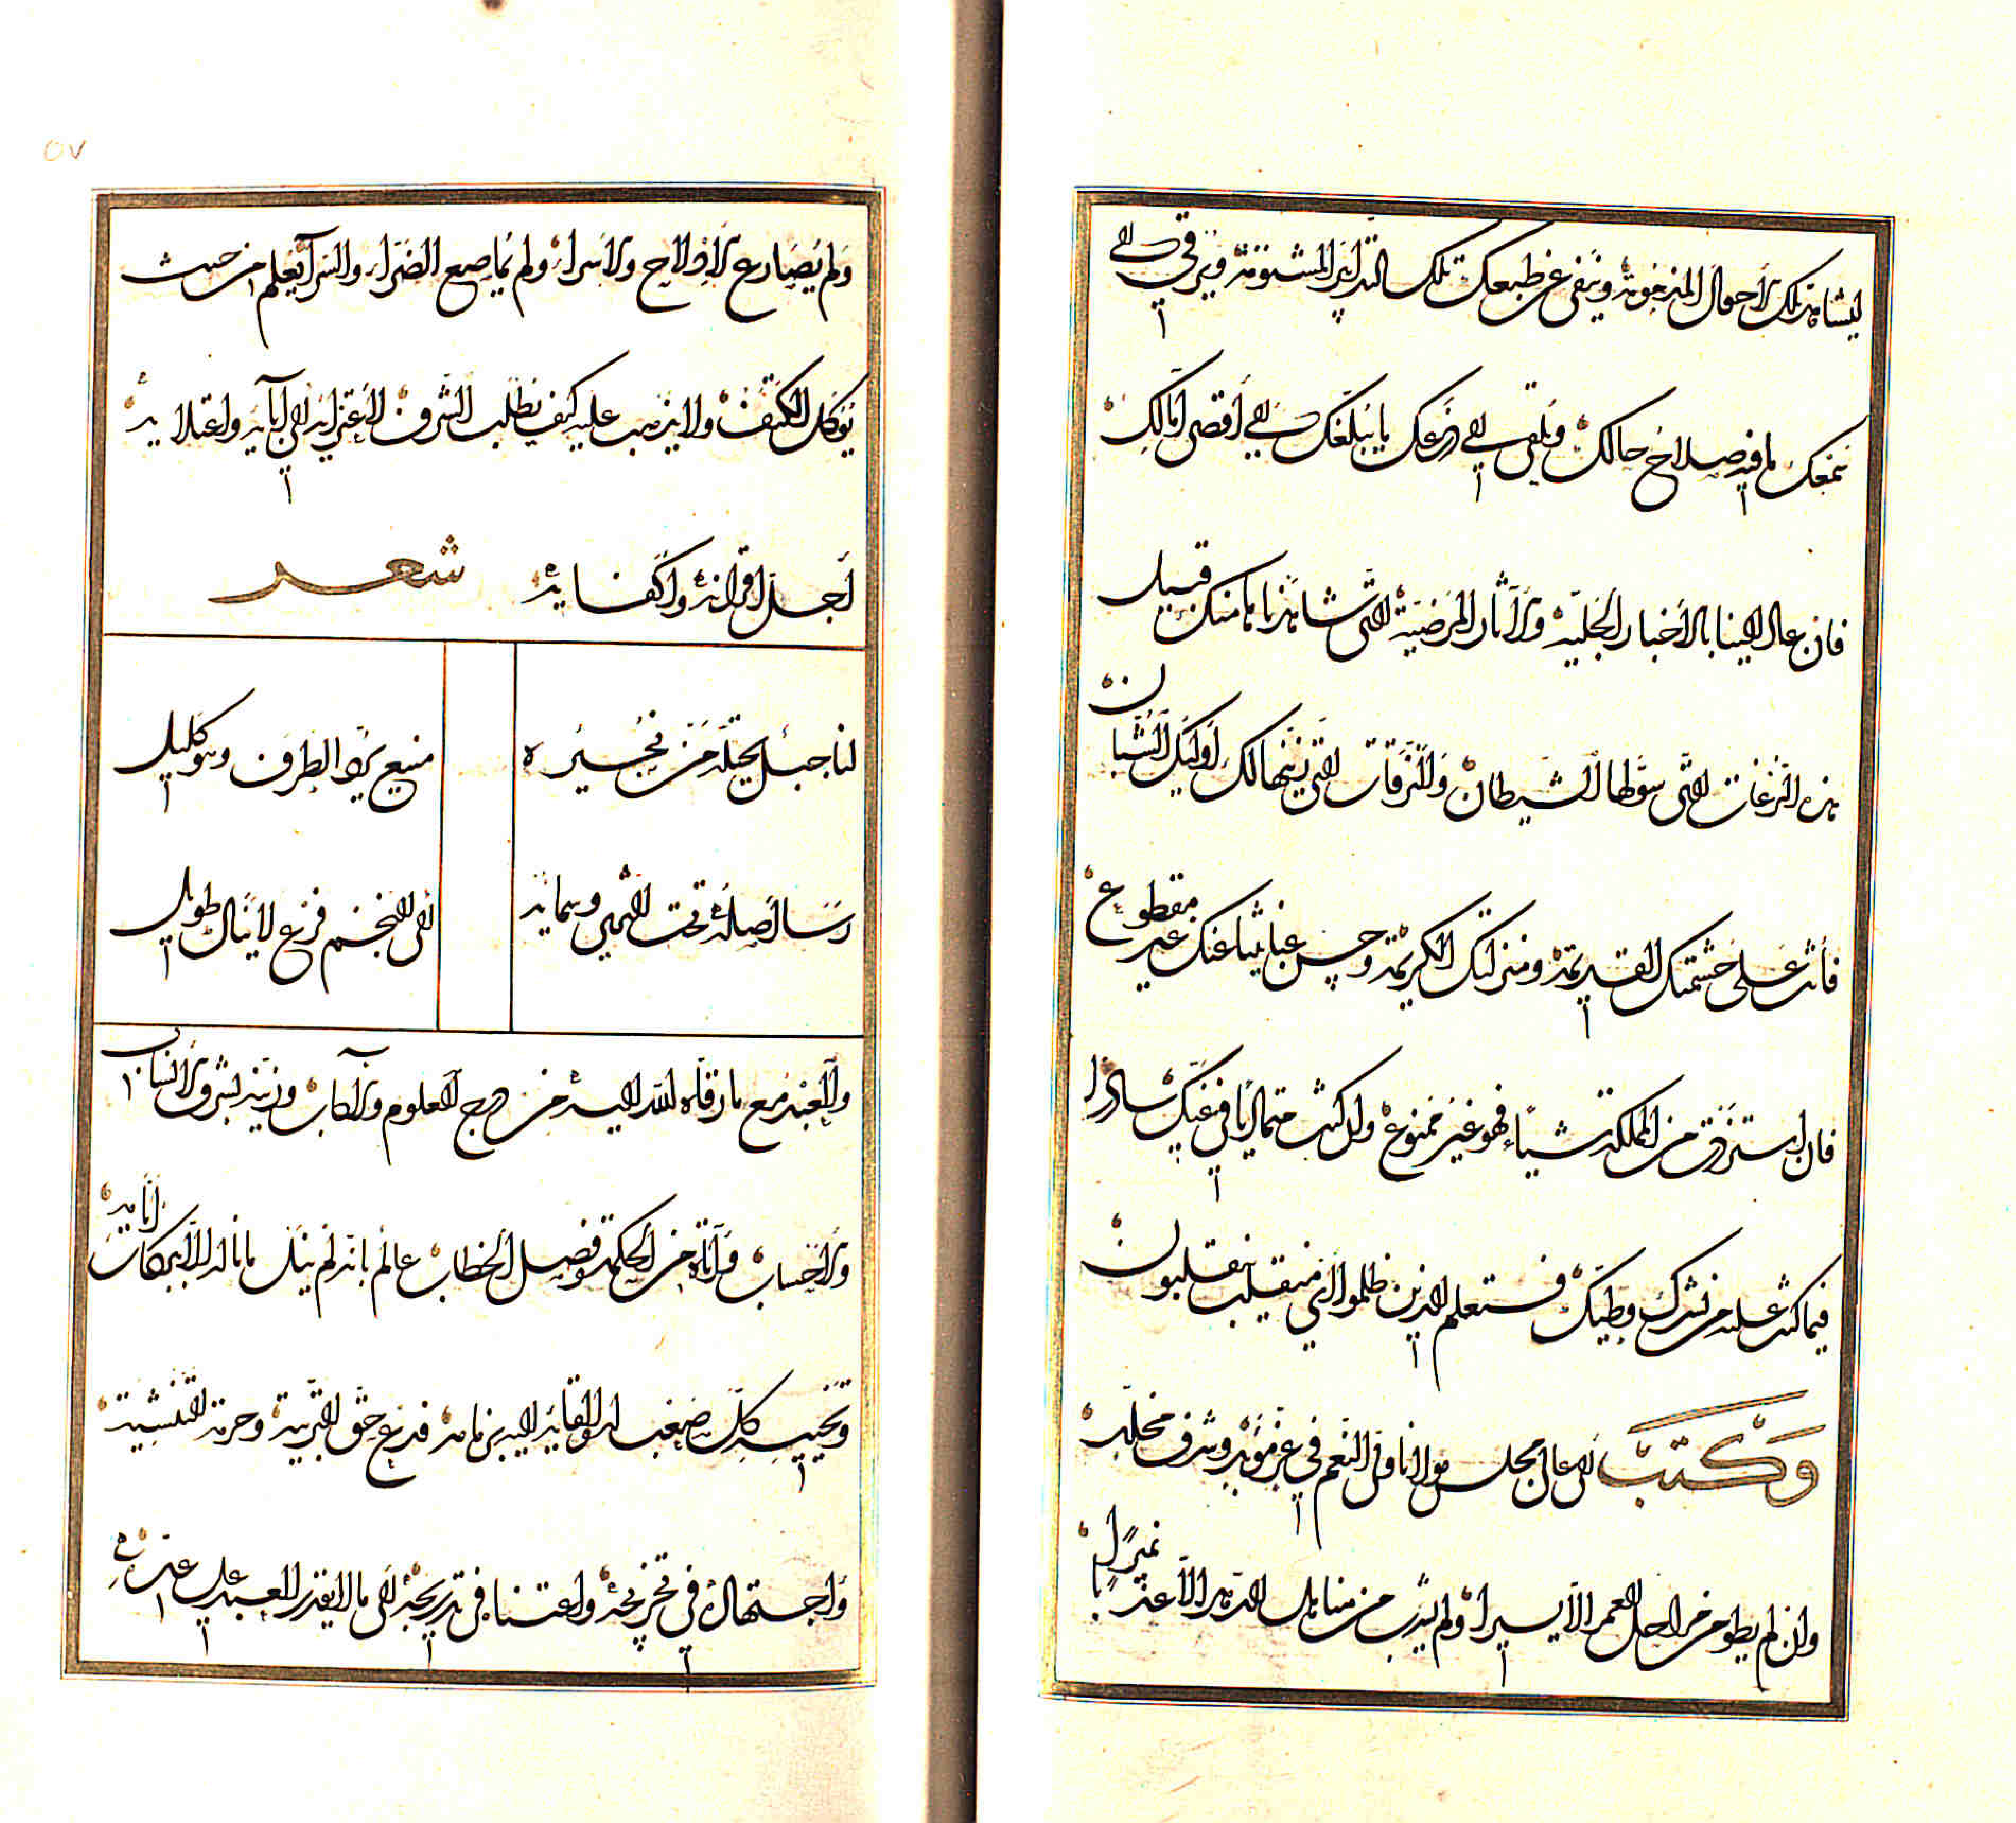 تلك الأحوال المذمومة وينفي عن طبعك تلك التدابير المشئومة ويرقي إلى
سمعك ما فيه صلاح حالك ويلقي في روعك ما يبلغك إلى أقصى آمالك
فان عاد الينا بالأخبار الجلية والآثار المرضية التي شاهدناها منك قبيل
هذه النزغات التي سولها الشيطان والنزقات التي زينها لك أولئك الشبان
فأنت على حشمتك القديمة ومنزلتك الكريمة وحسن عنايتنا عنك غير مقطوع
فان استزدت من المملكة شيئاء فهو غير ممنوع وان كنت متماديا في غيك سادرا
فيما كنت عليه من نشرك وطيك فستعلم الذين ظلموا أي منقلب ينقلبون
وكتب الى عالي مجلس مولانا ولي النعم في عز مؤبد وشرف مخلد
وان لم يطو من مراحل العمر الا يسيرا ولم يشرب من مناهل الدهر الا عذبا نميرا
ولم يصارع الأفلاح والأسراء ولم يماصع الضراء والسراء يعلم من حيث
يؤكل الكتف ولا يذهب عليه كيف يطلب الشرف لاعتزائه الى آبائه واعتلائه
أجل أقرانه وأكفائه شعر
لنا جبل يحتله من نجيره منيع يرد الطرف وهو كليل
رسا أصله تحت الثرى وسما به الى النجم فرع لا ينال طويل
والعبد مع ما رقاه الله اليه من درج العلوم والآداب وزينه بشرف الأنساب
والاحتساب وآتاه من الحكمة وفصل الخطاب عالم بانه لم ينل ما ناله الا ببركات أيامه
وتحبيب كل صعب القائه اليه بزمامه قد رعى حق التربية وحرمة التنشية
واجتهاده في تخريجه واعتنا في تدريجه الى ما لا يقدر العبد على عده